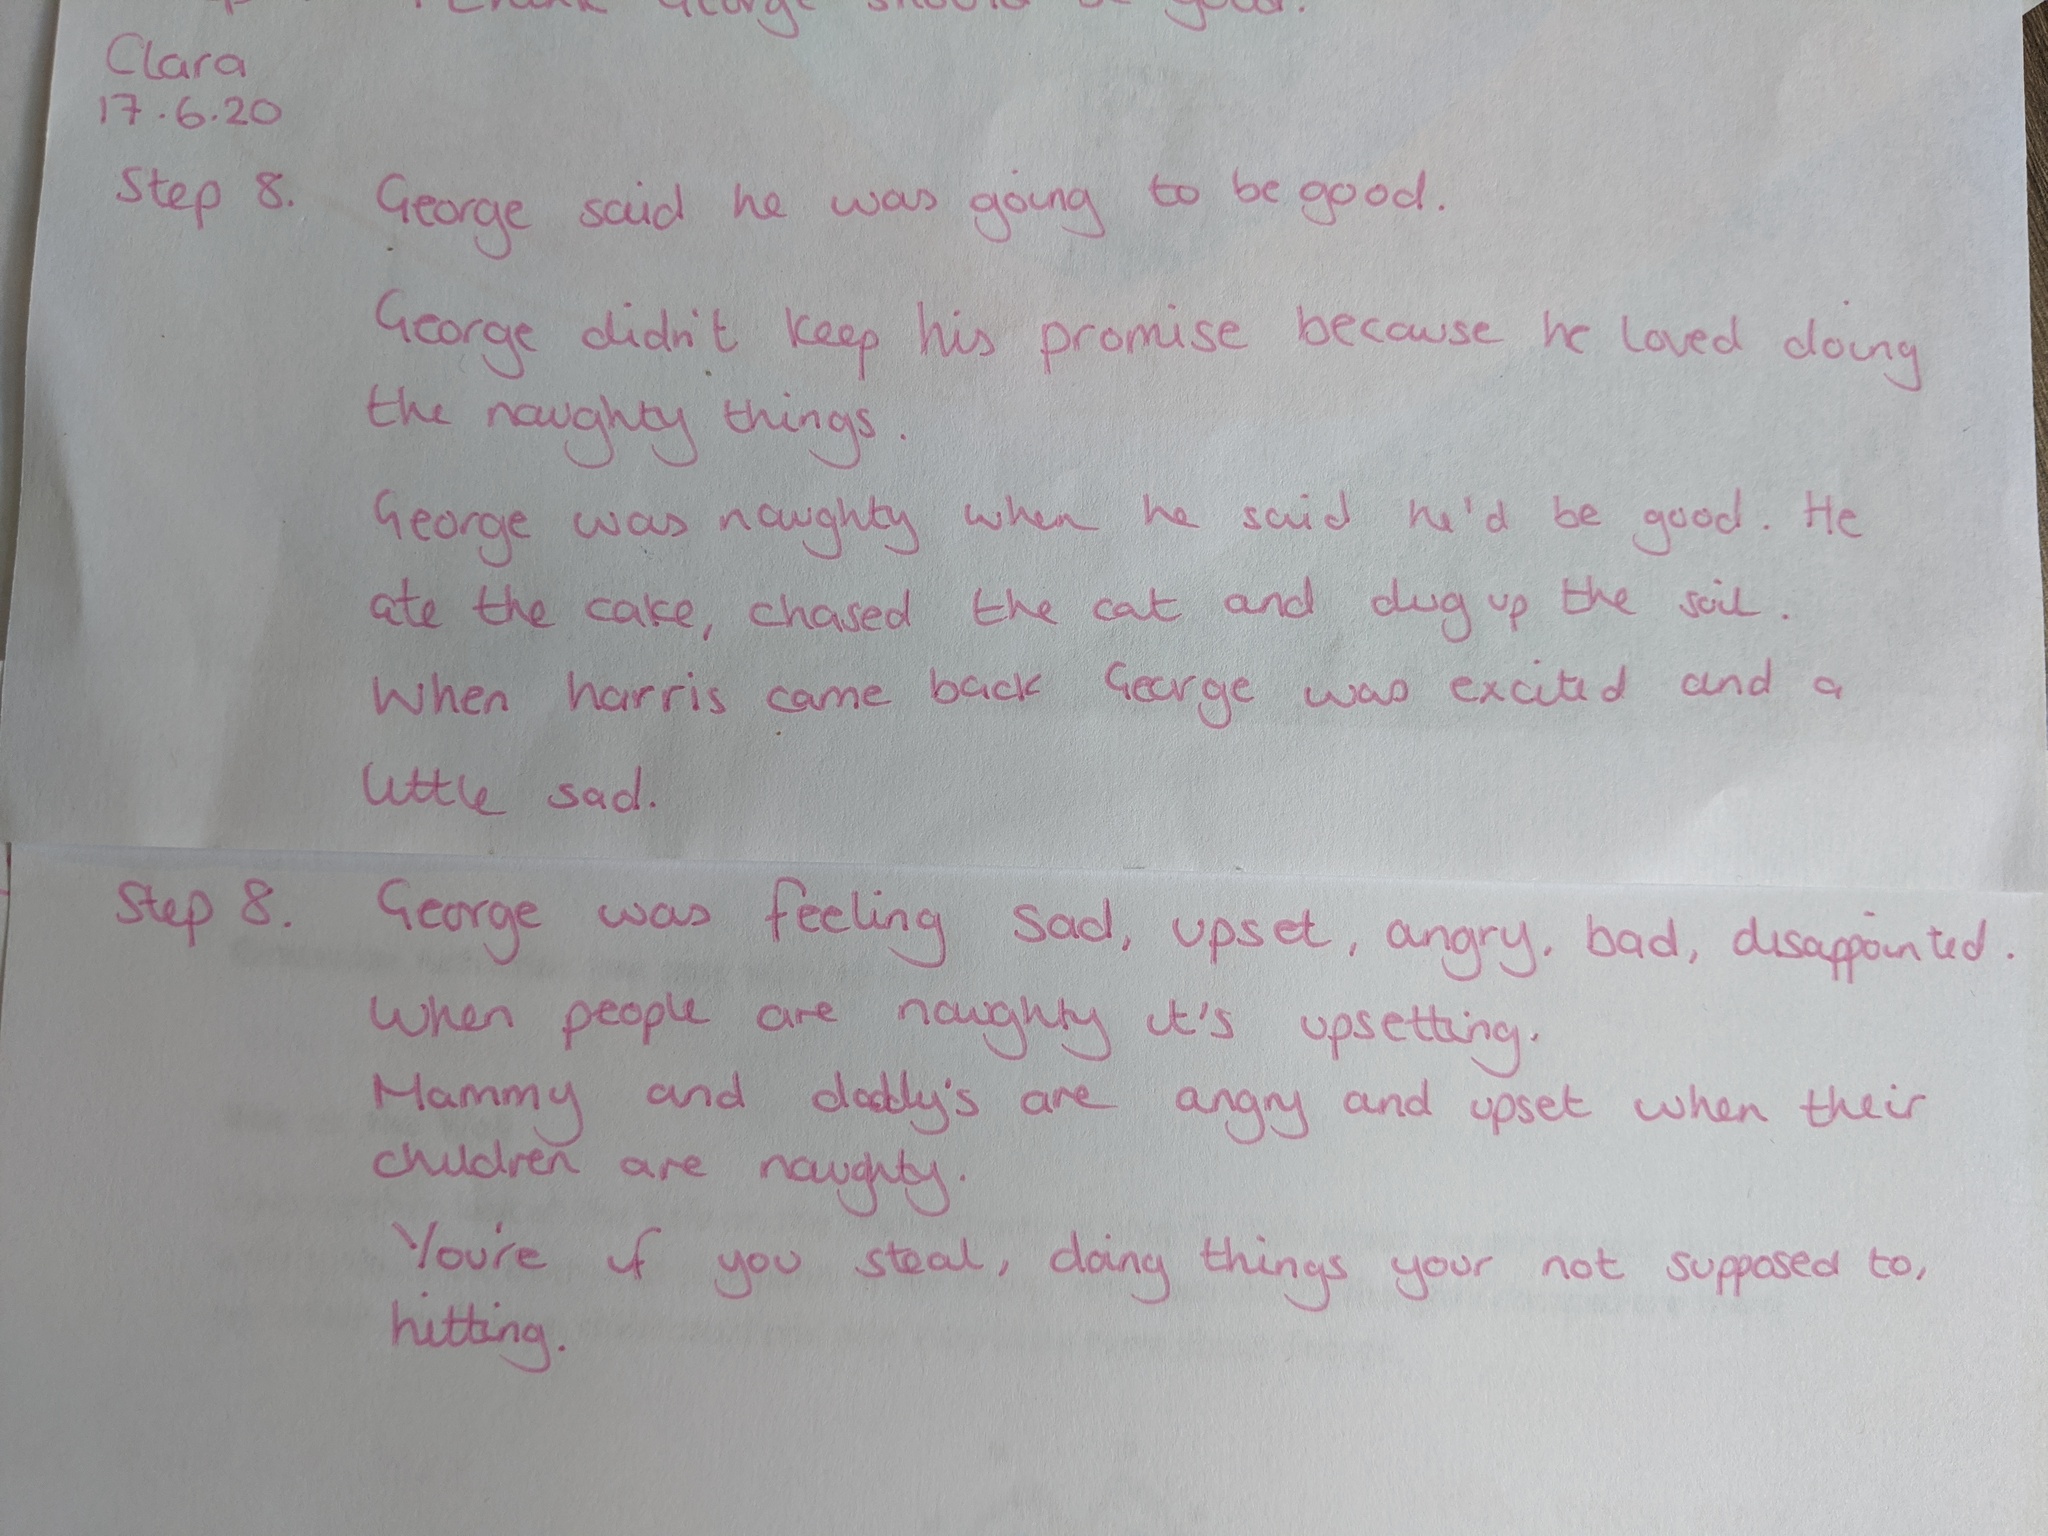 I think George should be good.
Clara
17.6.20
Step 8. George said he was going to be good.
George didn't keep his promise because he loved doing
the naughty things.
George was naughty when he said he'd be good. He
ate the cake, chased the cat and dug up the soil.
When harris came back George was excited and a
little sad.
Step 8. George was feeling sad, upset, angry, bad, disappointed.
When people are naughty it's upsetting.
Mammy and daddy's are angry and upset when their
children are naughty.
You're if you steal, doing things your not supposed to,
hitting.